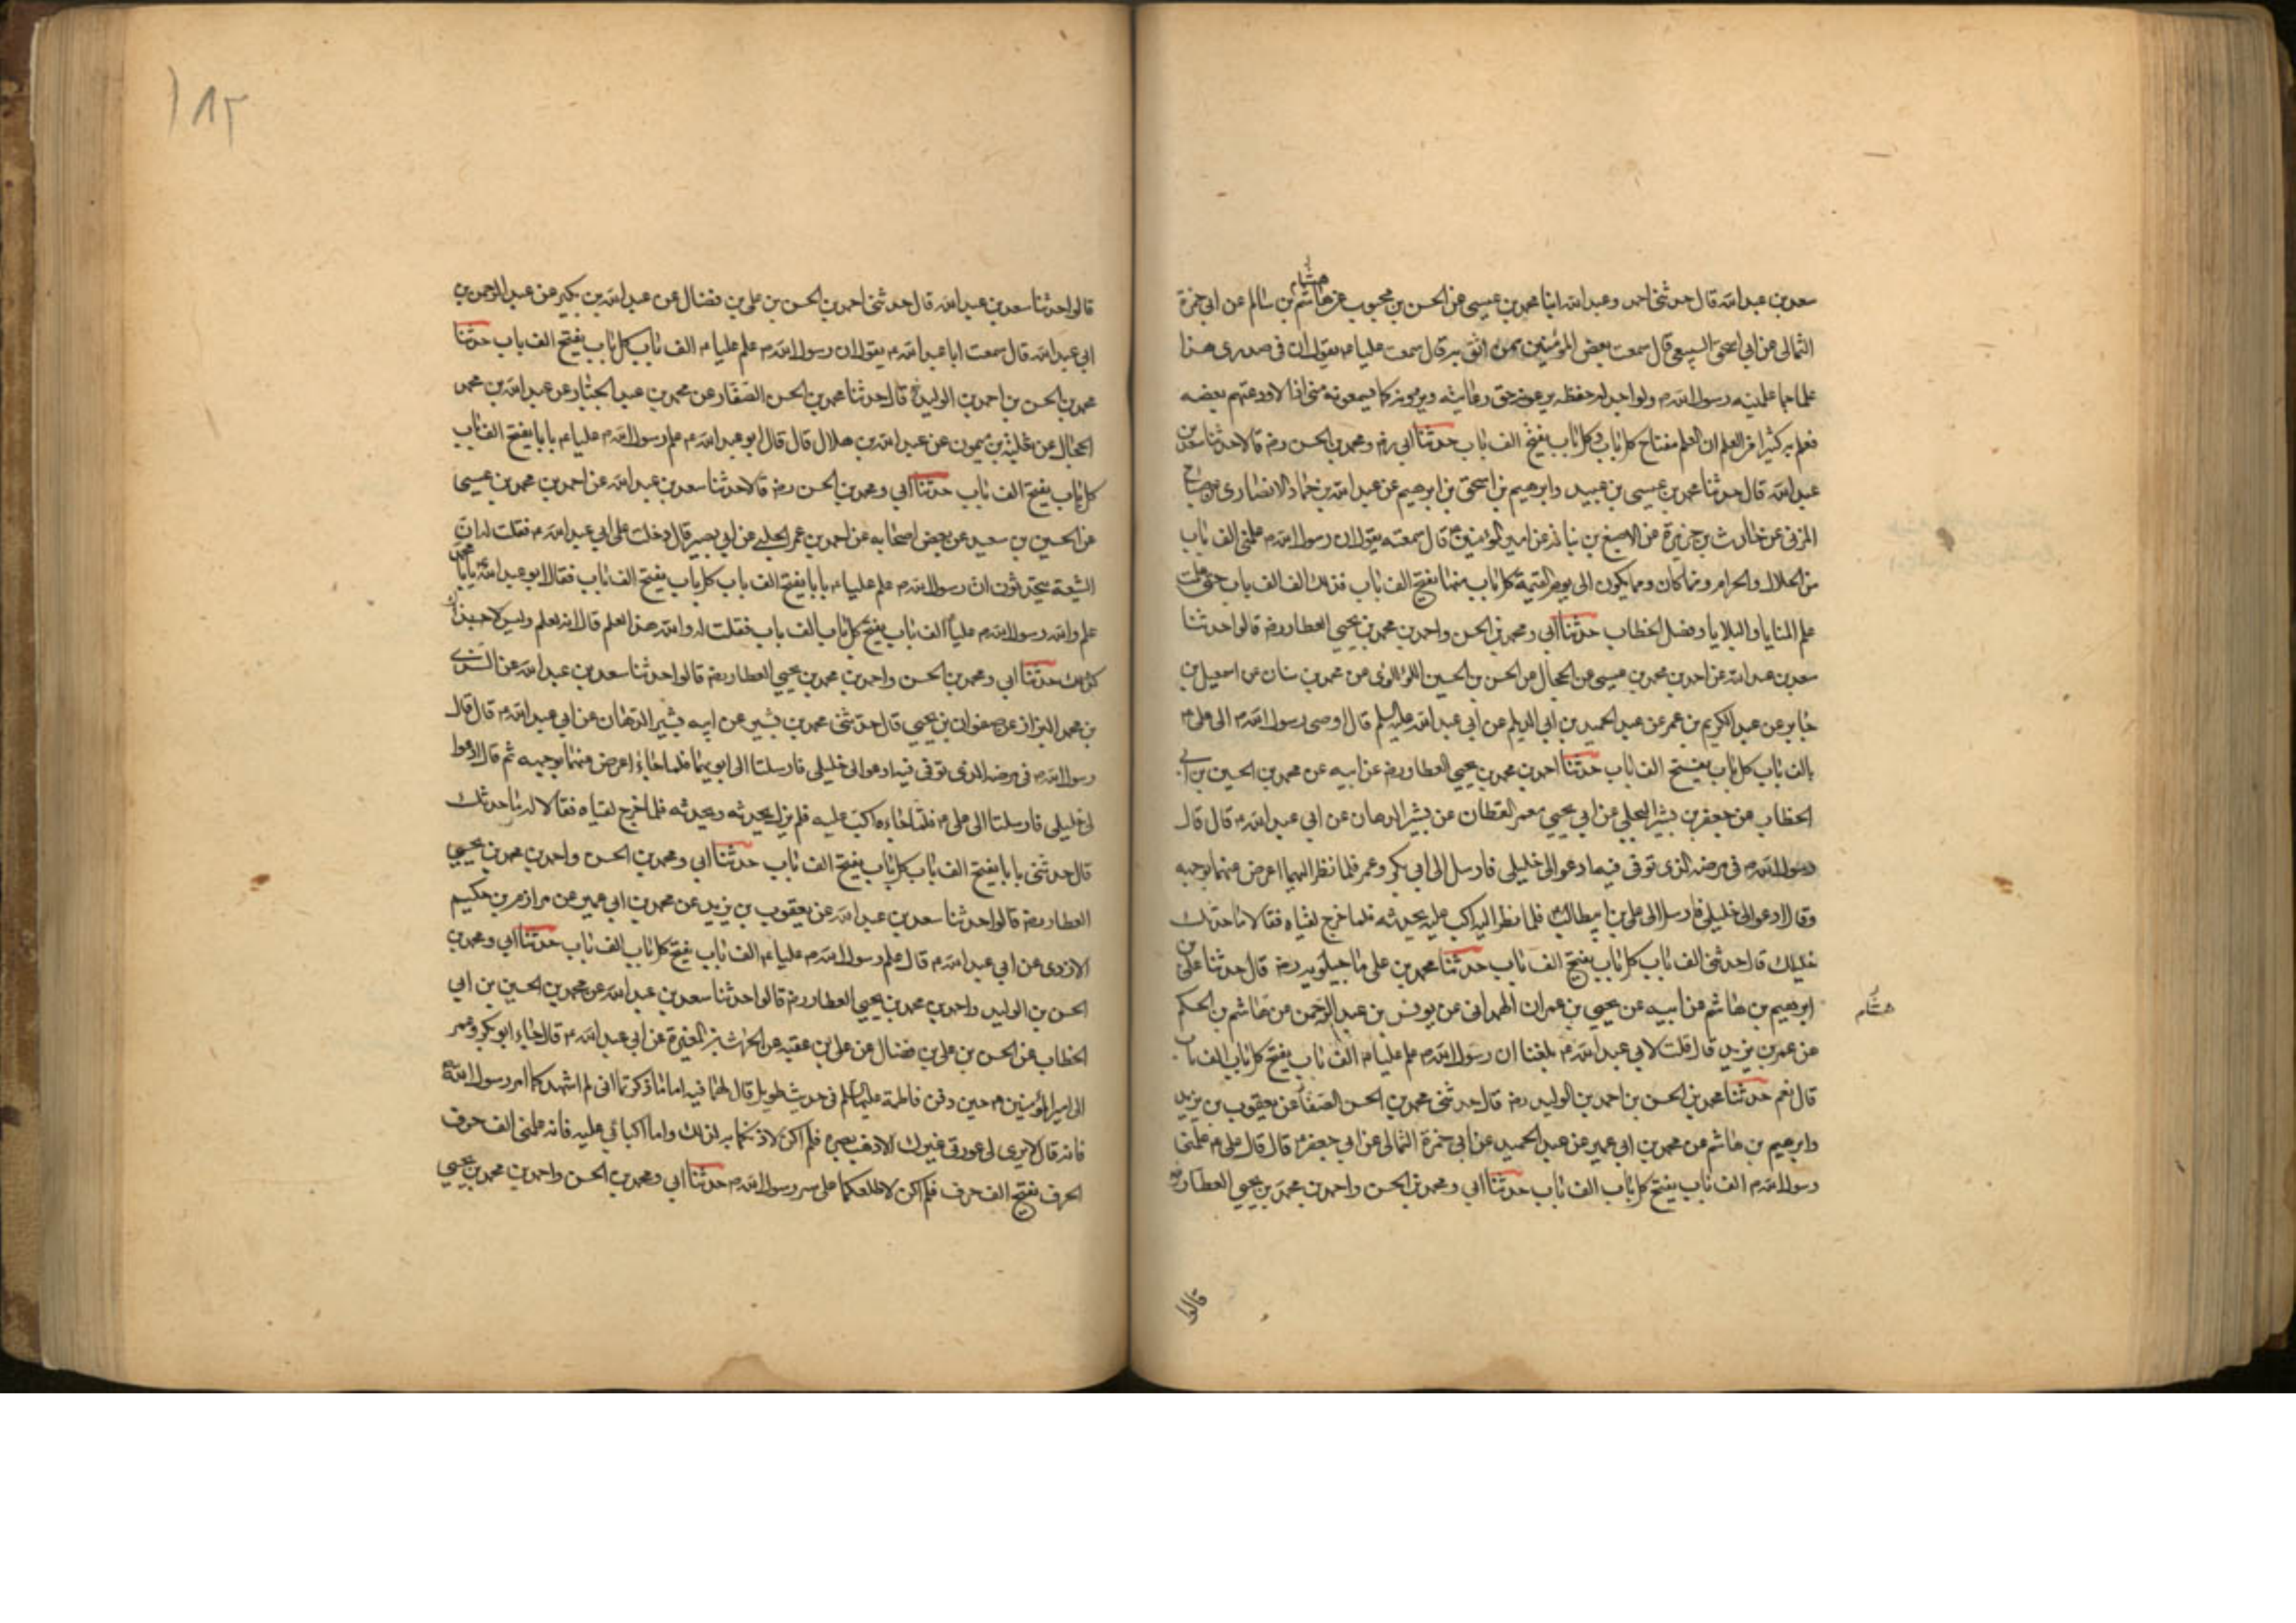 هشام
سعد بن عبد الله قال حدثني احمد وعبد الله ابنا محمد بن عيسى عن الحسن بن محبوب عن هاشم بن سالم عن ابي حمزة
الثمالي عن ابي اسحق السبيعي قال سمعت بعض المؤمنين ممن اثق به قال سمعت عليا ع يقول ان في صدري هذا
علما جما علمنيه رسول الله ص ولو اجد له حفظه يرعونه حق رعايته ويروونه كما يسمعونه مني اذا لاودعتهم بعضه
فعلم به كثيرا من العلم ان العلم مفتاح كل باب وكل باب يفتح الف باب حدثنا ابي رض ومحمد بن الحسن رض قالا حدثنا سعد بن
عبد الله قال حدثنا محمد بن عيسى بن عبيد وابرهيم بن اسحق بن ابرهيم عن عبد الله بن حماد الانصاري عن صباح
المزني عن حارث بن حصيرة عن الاصبغ بن نباته عن امير المؤمنين ع قال سمعته يقول ان رسول الله ص علمني الف باب
من الحلال والحرام ومما كان ومما يكون الى يوم القيمة كل باب منها يفتح الف باب فذلك الف الف باب حتى علمت
علم المنايا والبلايا وفصل الخطاب حدثنا ابي ومحمد بن الحسن واحمد بن محمد بن يحيى العطار رض قالوا حدثنا
سعد بن عبد الله عن احمد بن محمد بن عيسى عن الحجال عن الحسن بن الحسين اللؤلؤي عن محمد بن سنان عن اسمعيل بن
جابر عن عبد الكريم بن عمر عن عبد الحميد بن ابي الديلم عن ابي عبد الله عليه السلم قال اوصى رسول الله ص الى علي ع
بالف باب كل باب يفتح الف باب حدثنا احمد بن محمد بن يحيى العطار رض عن ابيه عن محمد بن الحسين بن ابي
الخطاب عن جعفر بن بشير البجلي عن ابي يحيى معمر القطان عن بشير الدهان عن ابي عبد الله ع قال قال
رسول الله ص في مرضه الذي توفي فيه ادعوا لي خليلي فارسل الى ابي بكر وعمر فلما نظر اليهما اعرض عنهما بوجهه
وقال ادعوا لي خليلي فارسلا الى علي بن ابيطالب فلما نظر اليه اكب عليه يحدثه فلما خرج لقياه فقالا ما حدثك
خليلك قال حدثني الف باب كل باب يفتح الف باب حدثنا محمد بن علي ماجيلويه رض قال حدثنا علي بن
ابرهيم بن هاشم عن ابيه عن يحيى بن عمران الهمداني عن يونس بن عبد الرحمن عن هاشم بن الحكم
هشام
عن عمر بن يزيد قال قلت لابي عبد الله ع بلغنا ان رسول الله ص علم عليا ع الف باب يفتح كل باب الف باب
قال نعم حدثنا محمد بن الحسن بن احمد بن الوليد رض قال حدثني محمد بن الحسن الصفار عن يعقوب بن يزيد
وابرهيم بن هاشم عن محمد بن ابي عمير عن عبد الحميد عن ابي حمزة الثمالي عن ابي جعفر ع قال قال علي ع علمني
رسول الله ص الف باب يفتح كل باب الف باب حدثنا ابي ومحمد بن الحسن واحمد بن محمد بن يحيى العطار رض
قالوا
١٨٢
قالوا حدثنا سعد بن عبد الله قال حدثني احمد بن الحسن بن علي بن فضال عن عبد الله بن بكير عن عبد الرحمن بن
ابي عبد الله قال سمعت ابا عبد الله ع يقول ان رسول الله ص علم عليا ع الف باب كل باب يفتح الف باب حدثنا
محمد بن الحسن بن احمد بن الوليد رض قال حدثنا محمد بن الحسن الصفار عن محمد بن عبد الجبار عن عبد الله بن محمد
الحجال عن ثعلبة بن ميمون عن عبد الله بن هلال قال قال ابو عبد الله ع علم رسول الله ص عليا ع بابا يفتح الف باب
كل باب يفتح الف باب حدثنا ابي ومحمد بن الحسن رض قالا حدثنا سعد بن عبد الله عن احمد بن محمد بن عيسى
عن الحسين بن سعيد عن بعض اصحابه عن احمد بن عمر الحلبي عن ابي بصير قال دخلت على ابي عبد الله ع فقلت له ان
الشيعة يتحدثون ان رسول الله ص علم عليا ع بابا يفتح الف باب كل باب يفتح الف باب فقال ابو عبد الله ع يا با محمد
علم والله رسول الله ص عليا الف باب يفتح كل باب الف باب فقلت له والله هذا العلم قال انه لعلم وليس
حدثنا ابي ومحمد بن الحسن واحمد بن محمد بن يحيى العطار رض قالوا حدثنا سعد بن عبد الله عن السندي
بن محمد البزاز عن صفوان بن يحيى قال حدثني محمد بن بشير عن ابيه بشير الدهان عن ابي عبد الله ع قال قال
رسول الله ص في مرضه الذي توفي فيه ادعوا لي خليلي فارسلتا الى ابويهما فلما جاءا اعرض عنهما بوجهه ثم قال ادعوا
لي خليلي فارسلتا الى علي ع فلما جاءه اكب عليه فلم يزل يحدثه ويحدثه فلما خرج لقياه فقالا له ما حدثك
قال حدثني بابا يفتح الف باب كل باب يفتح الف باب حدثنا ابي ومحمد بن الحسن واحمد بن محمد بن يحيى
العطار رض قالوا حدثنا سعد بن عبد الله عن يعقوب بن يزيد عن محمد بن ابي عمير عن مرازم بن حكيم
الازدي عن ابي عبد الله ع قال علم رسول الله ص عليا ع الف باب يفتح كل باب الف باب حدثنا ابي ومحمد بن
الحسن بن الوليد واحمد بن محمد بن يحيى العطار رض قالوا حدثنا سعد بن عبد الله عن محمد بن الحسين بن ابي
الخطاب عن الحسن بن علي بن فضال عن علي بن عقبه عن الحرث بن المغيرة عن ابي عبد الله ع قال جاء ابو بكر وعمر
الى امير المؤمنين ع حين دفن فاطمة عليها السلم في حديث طويل قال لهما فيه اما ما ذكرتما اني لم اشهدكما امر رسول الله ص
فانه قال لا يرى لي عورتي غيرك الا ذهب بصره فلم اكن لاذنكما به لذلك واما اكبابي عليه فانه علمني الف حرف
الحرف يفتح الف حرف فلم اكن لاطلعكما على سر رسول الله ص حدثنا ابي ومحمد بن الحسن واحمد بن محمد بن يحيى